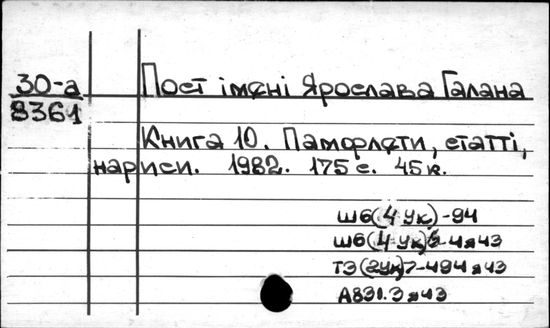 30-а Пост імені Ярослава Галана
8361
Книга 10. Памфлети, статті,
нариси. 1982. 175 с. 45 к.
Ш6(4Ук)-94
Ш6(4Ук)6-4я43
Т3(2Ук)7-494я43
А831.3я43